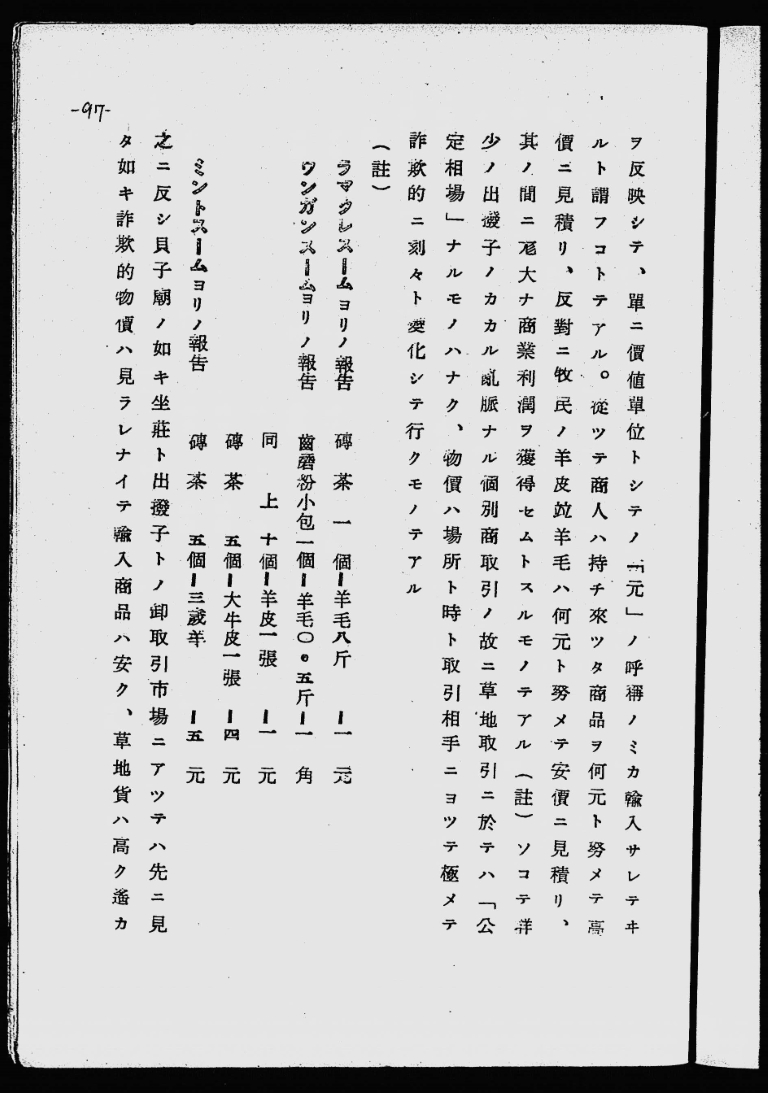 -97-
ヲ反映シテ、單ニ價値單位トシテノ「元」ノ呼稱ノミカ輸入サレテヰ
ルト謂フコトテアル。從ツテ商人ハ持チ來ツタ商品ヲ何元ト努メテ高
價ニ見積リ、反對ニ牧民ノ羊皮竝羊毛ハ何元ト努メテ安價ニ見積リ、
其ノ間ニ尨大ナ商業利潤ヲ獲得セムトスルモノテアル(註)ソコテ群
少ノ出撥子ノカカル亂脈ナル個別商取引ノ故ニ草地取引ニ於テハ「公
定相場」ナルモノハナク、物價ハ場所ト時ト取引相手ニヨツテ極メテ
詐欺的ニ刻々ト變化シテ行クモノテアル
(註)
ラマクレスームヨリノ報告 磚茶一個ー羊毛八斤 ー一元
ワンガンスームヨリノ報告 齒磨粉小包一個ー羊毛〇・五斤ー一角
同上 十個ー羊皮一張 ー一元
磚茶 五個ー大牛皮一張 ー四元
ミントスームヨリノ報告 磚茶 五個ー三歲羊 ー五元
之ニ反シ貝子廟ノ如キ坐莊ト出撥子トノ卸取引市場ニアツテハ先ニ見
タ如キ詐欺的物價ハ見ラレナイテ輸入商品ハ安ク、草地貨ハ高ク遙カ